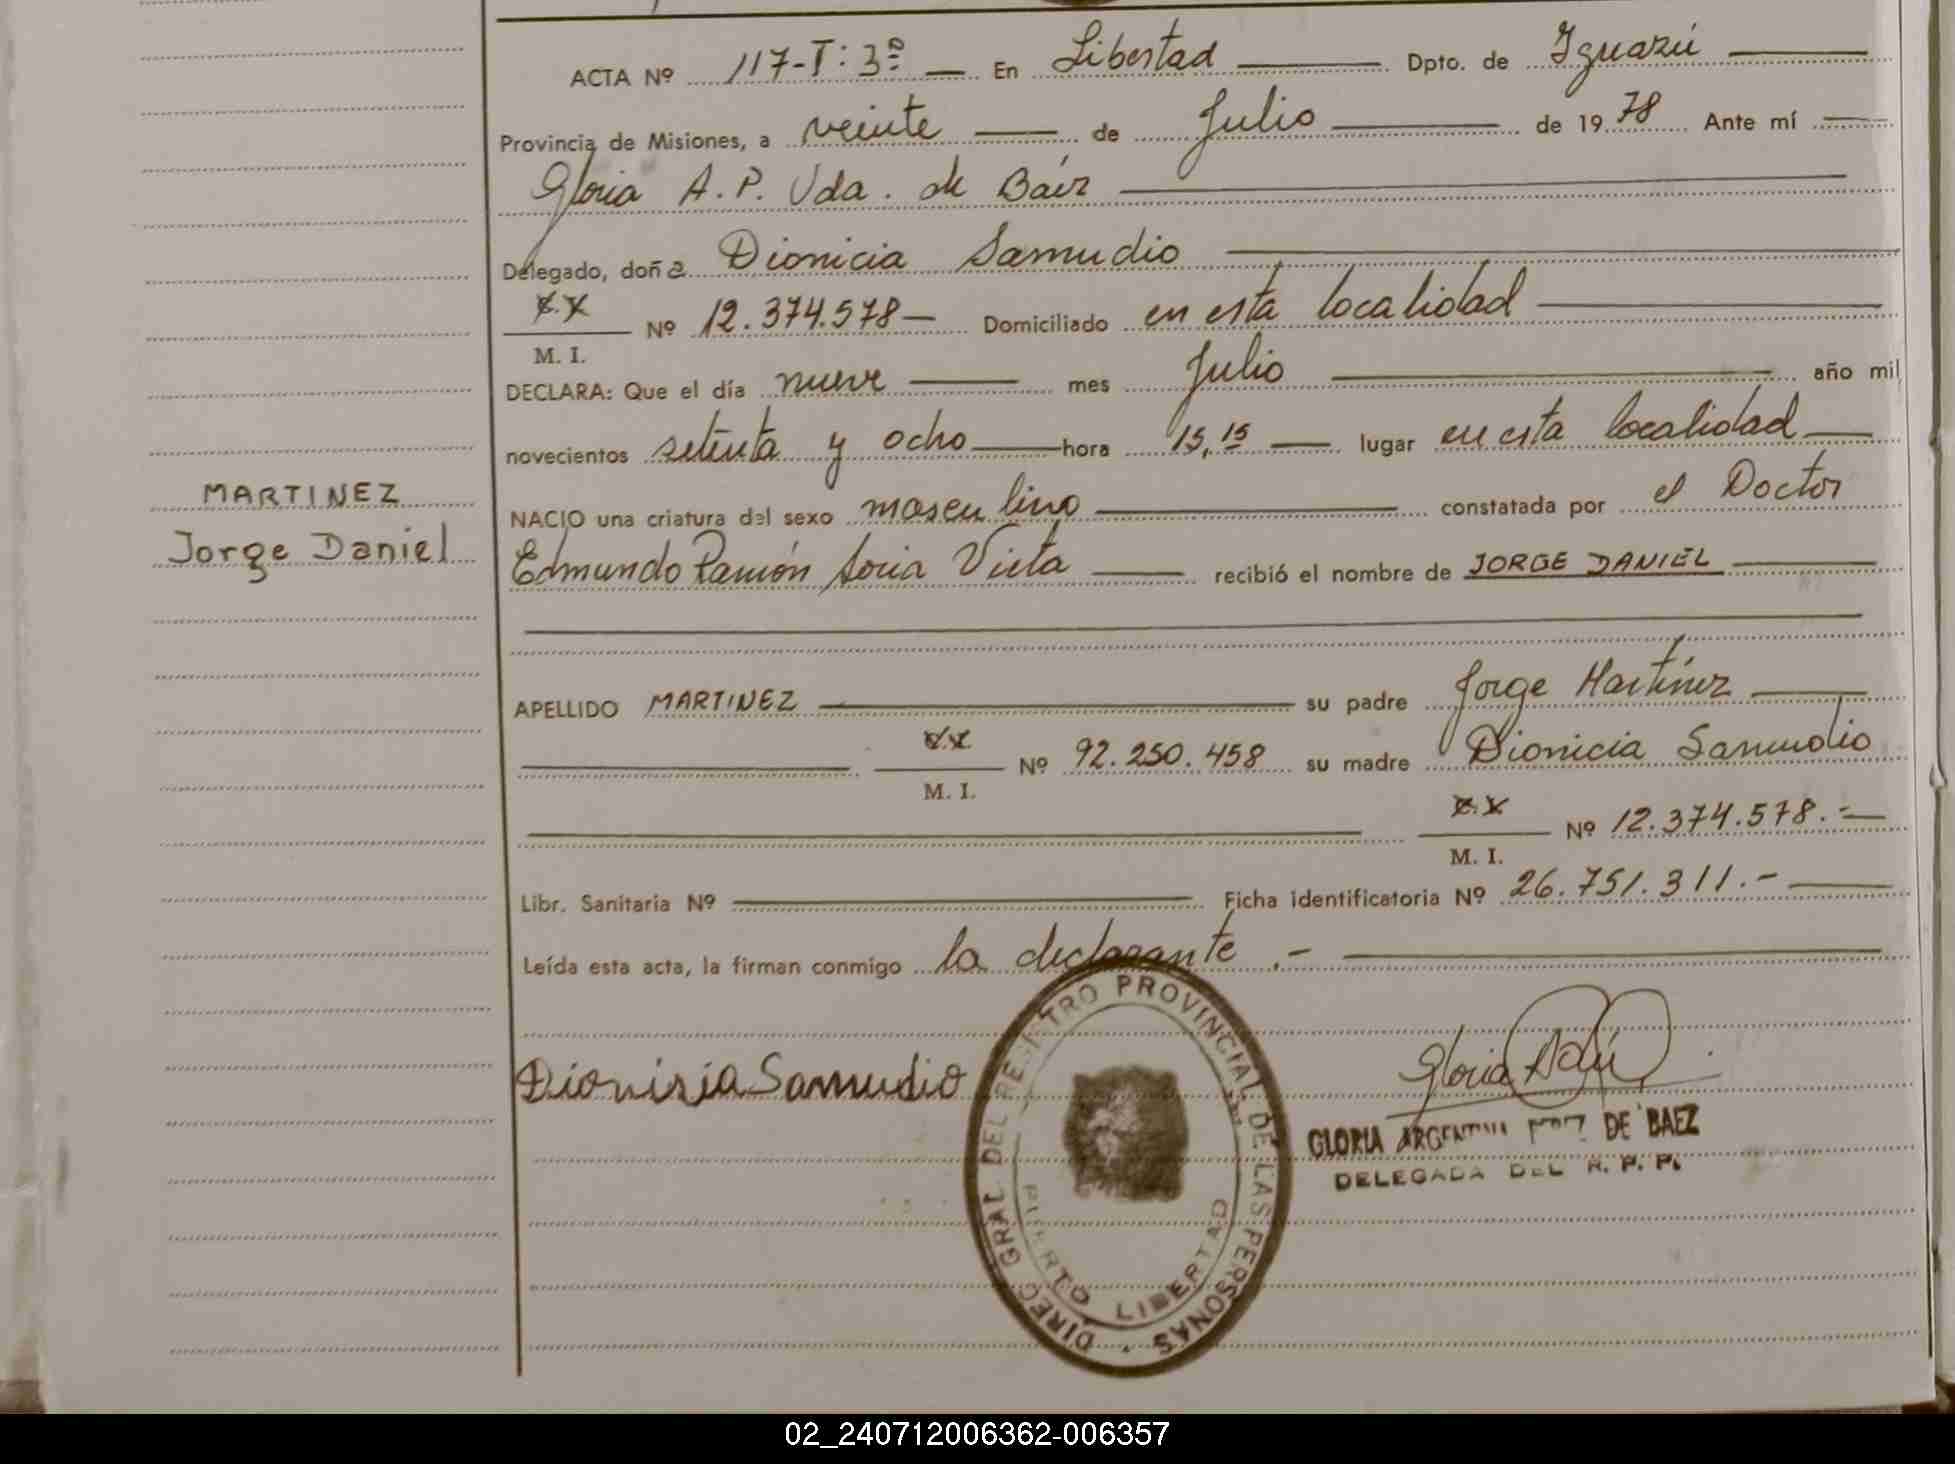 ACTA Nº 117-T: 3º — En Libertad — Dpto. de Iguazú —
Provincia de Misiones, a veinte — de Julio — de 1978 Ante mí —
Gloria A. P. Vda. de Báez —
Delegado, doña Dionicia Samudio —
Nº 12.374.578 — Domiciliado en esta localidad —
M. I.
DECLARA: Que el día nueve — mes Julio — año mil
novecientos setenta y ocho — hora 15,15 — lugar en esta localidad —
MARTINEZ
Jorge Daniel
NACIO una criatura del sexo masculino — constatada por el Doctor
Edmundo Ramón Soria Vieta — recibió el nombre de JORGE DANIEL —
APELLIDO MARTINEZ — su padre Jorge Martínez —
Nº 92.250.458 su madre Dionicia Samudio
M. I.
Nº 12.374.578.- —
M. I.
Libr. Sanitaria Nº — Ficha identificatoria Nº 26.751.311.- —
Leída esta acta, la firman conmigo la declarante .- —
Dionisia Samudio
Gloria
DIREC. GRAL. DEL REGISTRO PROVINCIAL DE LAS PERSONAS
PUERTO LIBERTAD
GLORIA ARGENTINA DE BAEZ
DELEGADA DEL R. P. P.
02_240712006362-006357